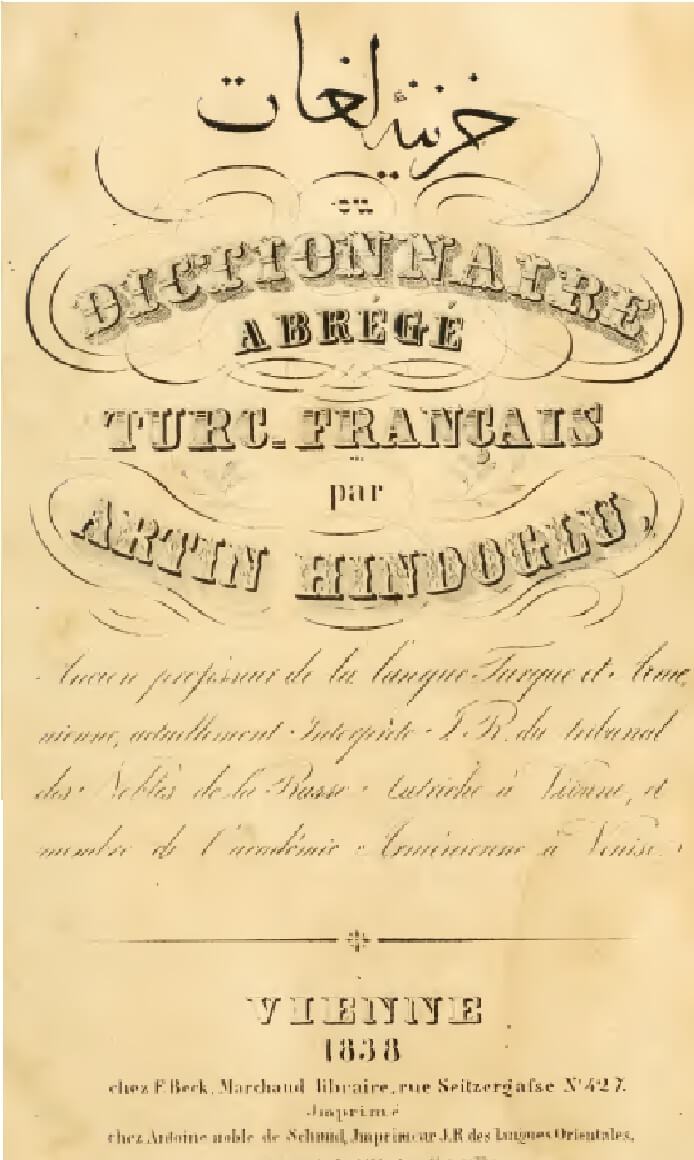 خزينهٔ لغات
ou
DICTIONNAIRE
ABRÉGÉ
TURC-FRANÇAIS
par
ARTIN HINDOGLU,
Ancien professeur de la langue Turque et Armé
nienne, actuellement Interprète I. R. du tribunal
des Nobles de la Basse Autriche à Vienne, et
membre de l'académie Arménienne à Venise.
VIENNE
1838
chez F. Beck, Marchand libraire, rue Seitzergasse N° 427.
Imprimé
chez Antoine noble de Schmid, Imprimeur J.R. des langues Orientales,